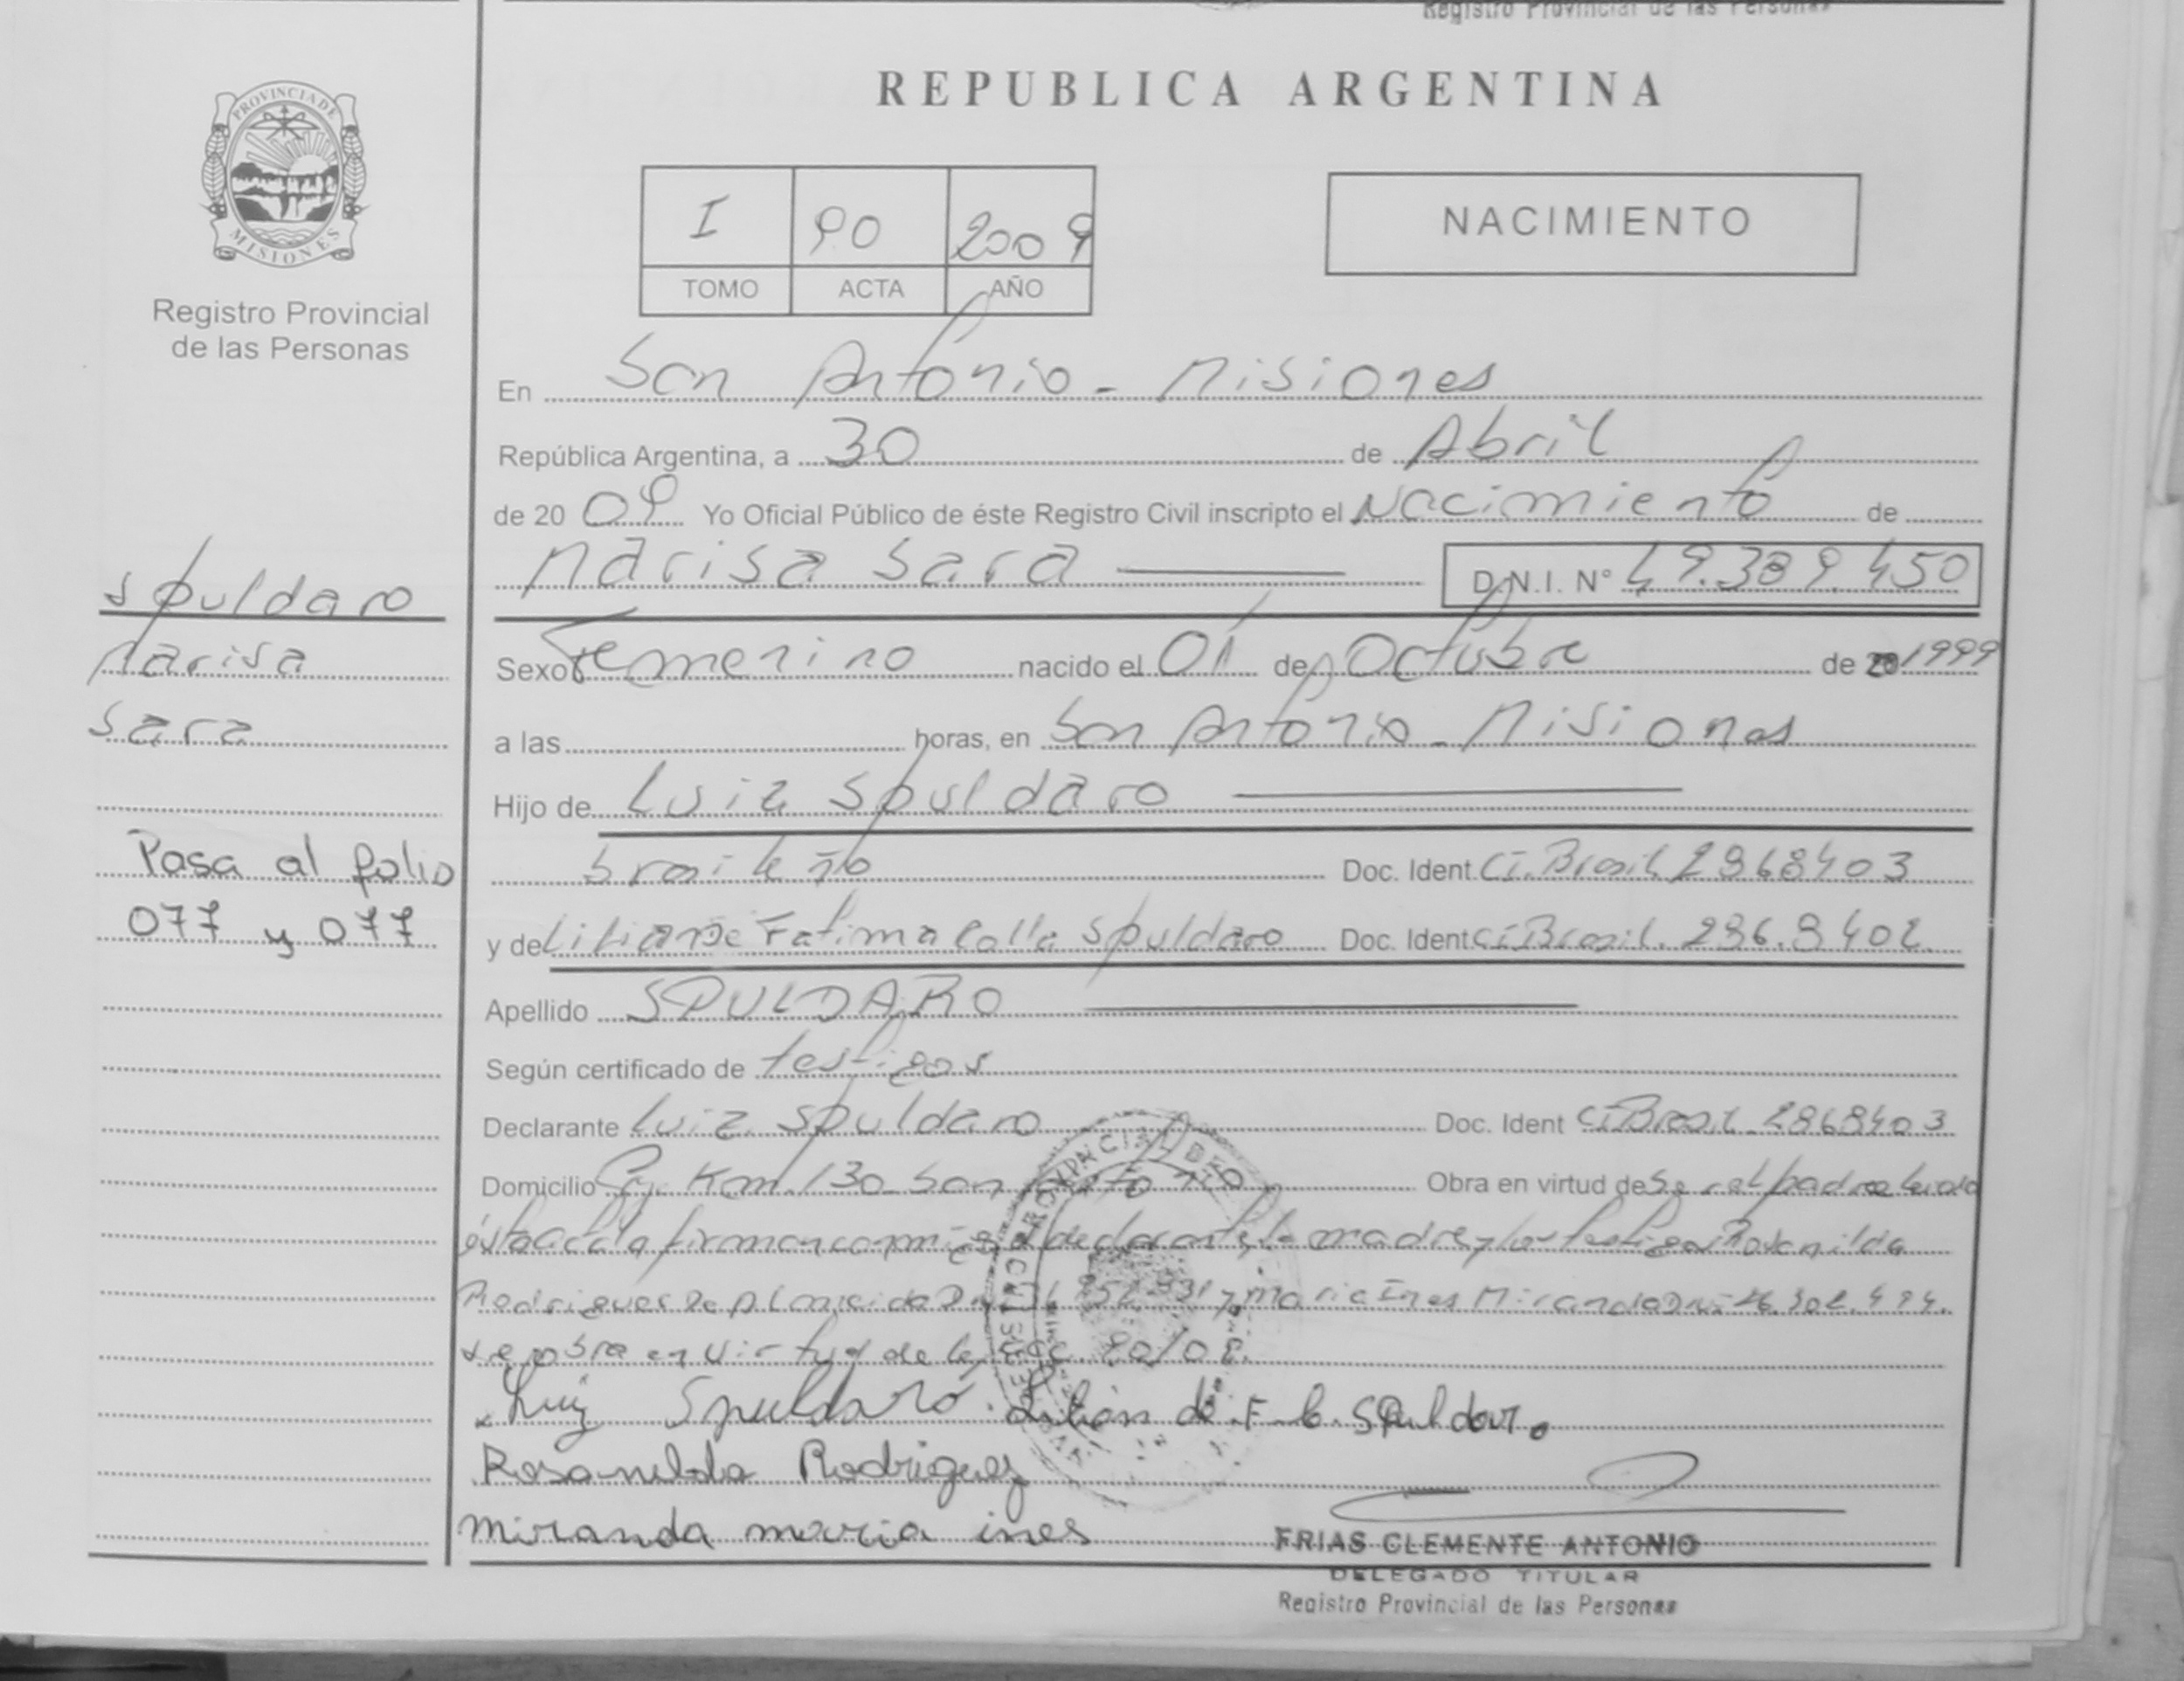 Registro Provincial de las Personas
REPUBLICA ARGENTINA
PROVINCIA DE
MISIONES
Registro Provincial
de las Personas
I 90 2009
TOMO ACTA AÑO
NACIMIENTO
En San Antonio - Misiones
República Argentina, a 30 de Abril
de 20 09 Yo Oficial Público de éste Registro Civil inscripto el Nacimiento de
Marisa Sara D.N.I. Nº 49.389.450
Spuldaro
Marisa
Sara
Sexo Femenino nacido el 01 de Octubre de 1999
a las horas, en San Antonio - Misiones
Hijo de Luiz Spuldaro
Pasa al folio
077 y 077
brasileño Doc. Ident. Ci. Brasil 2868403
y de Liliane De Fatima Colla Spuldaro Doc. Ident Ci Brasil. 286.8402
Apellido SPULDARO
Según certificado de testigos
Declarante Luiz Spuldaro Doc. Ident Ci Brasil 2868403
Domicilio Km. 130 San Antonio Obra en virtud de Ser el padre Leida
ésta acta firman conmigo el declarante, la madre y los testigos Rosenilda
Rodrigues De Almeida y Maria Ines Miranda Dni 26.302.494.
se obra en virtud de la 90/08.
Luiz Spuldaro. Lilian de F. C. Spuldaro
Rosanilda Rodriguez
Miranda maria ines
FRIAS CLEMENTE ANTONIO
DELEGADO TITULAR
Registro Provincial de las Personas